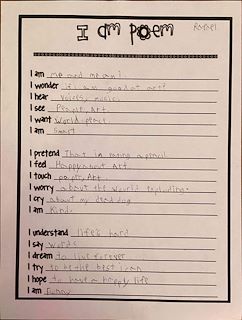 Rafael
I am poem
I am me and me and
I wonder if i am good at art?
I hear voices, music.
I see People, Art
I want World peace.
I am Smart
I pretend That im using a pencil
I feel Happy about Art.
I touch paper, Art.
I worry about the world exploding.
I cry about my dead dog
I am Kind.
I understand life's hard
I say words
I dream to live forever
I try to be the best i can
I hope to have a happy life
I am Funny